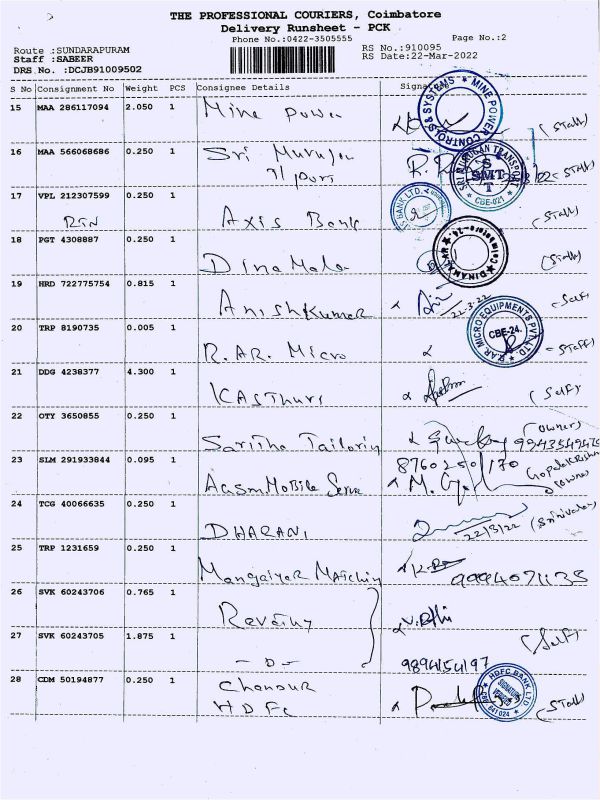 THE PROFESSIONAL COURIERS, Coimbatore
Delivery Runsheet - PCK
Phone No.:0422-3505555
Page No.:2
Route :SUNDARAPURAM
RS No.:910095
Staff :SABEER
RS Date:22-Mar-2022
DRS No. :DCJB91009502
S No Consignment No Weight PCS Consignee Details Signature
15 MAA 286117094 2.050 1 Mine power (Staff)
MINE POWER CONTROLS & SYSTEMS
16 MAA 566068686 0.250 1 Sri Murugan T/port (Staff)
SRI MURUGAN TRANSPORT SMT CBE-021
17 VPL 212307599 0.250 1 Axis Bank (Staff)
RTN
18 PGT 4308887 0.250 1 Dinamala (Staff)
DINAMALAR Coimbatore-24
19 HRD 722775754 0.815 1 Anishkumar 22.3.22 (Self)
20 TRP 8190735 0.005 1 R.AR. Micro (Staff)
RAR MICRO EQUIPMENTS PVT. LTD. CBE-24.
21 DDG 4238377 4.300 1 Kasthuri (Self)
22 OTY 3650855 0.250 1 Saritha Tailoring (owner)
23 SLM 291933844 0.095 1 Aasm Mobile Serve 8760250170 Gopalakrishnan (owner)
24 TCG 40066635 0.250 1 DHARANI 22/3/22 (Srinivasan)
25 TRP 1231659 0.250 1 Mangaiyar Matching 9994071135
26 SVK 60243706 0.765 1 Revathy
27 SVK 60243705 1.875 1 -D- (Self)
9894154197
28 CDM 50194877 0.250 1 Chandur HDFC (Staff)
HDFC BANK LTD SIGNATURE VERIFIED CBE 641024